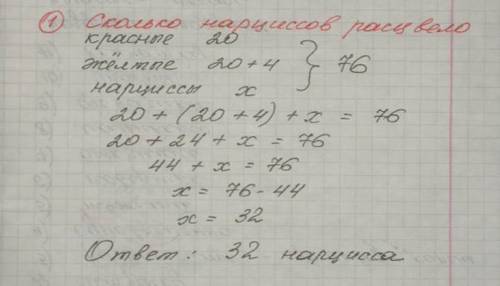 1 Сколько нарциссов расцвело
красные 20
жёлтые 20+4 } 76
нарциссы x
20 + (20 + 4) + x = 76
20 + 24 + x = 76
44 + x = 76
x = 76 - 44
x = 32
Ответ: 32 нарцисса